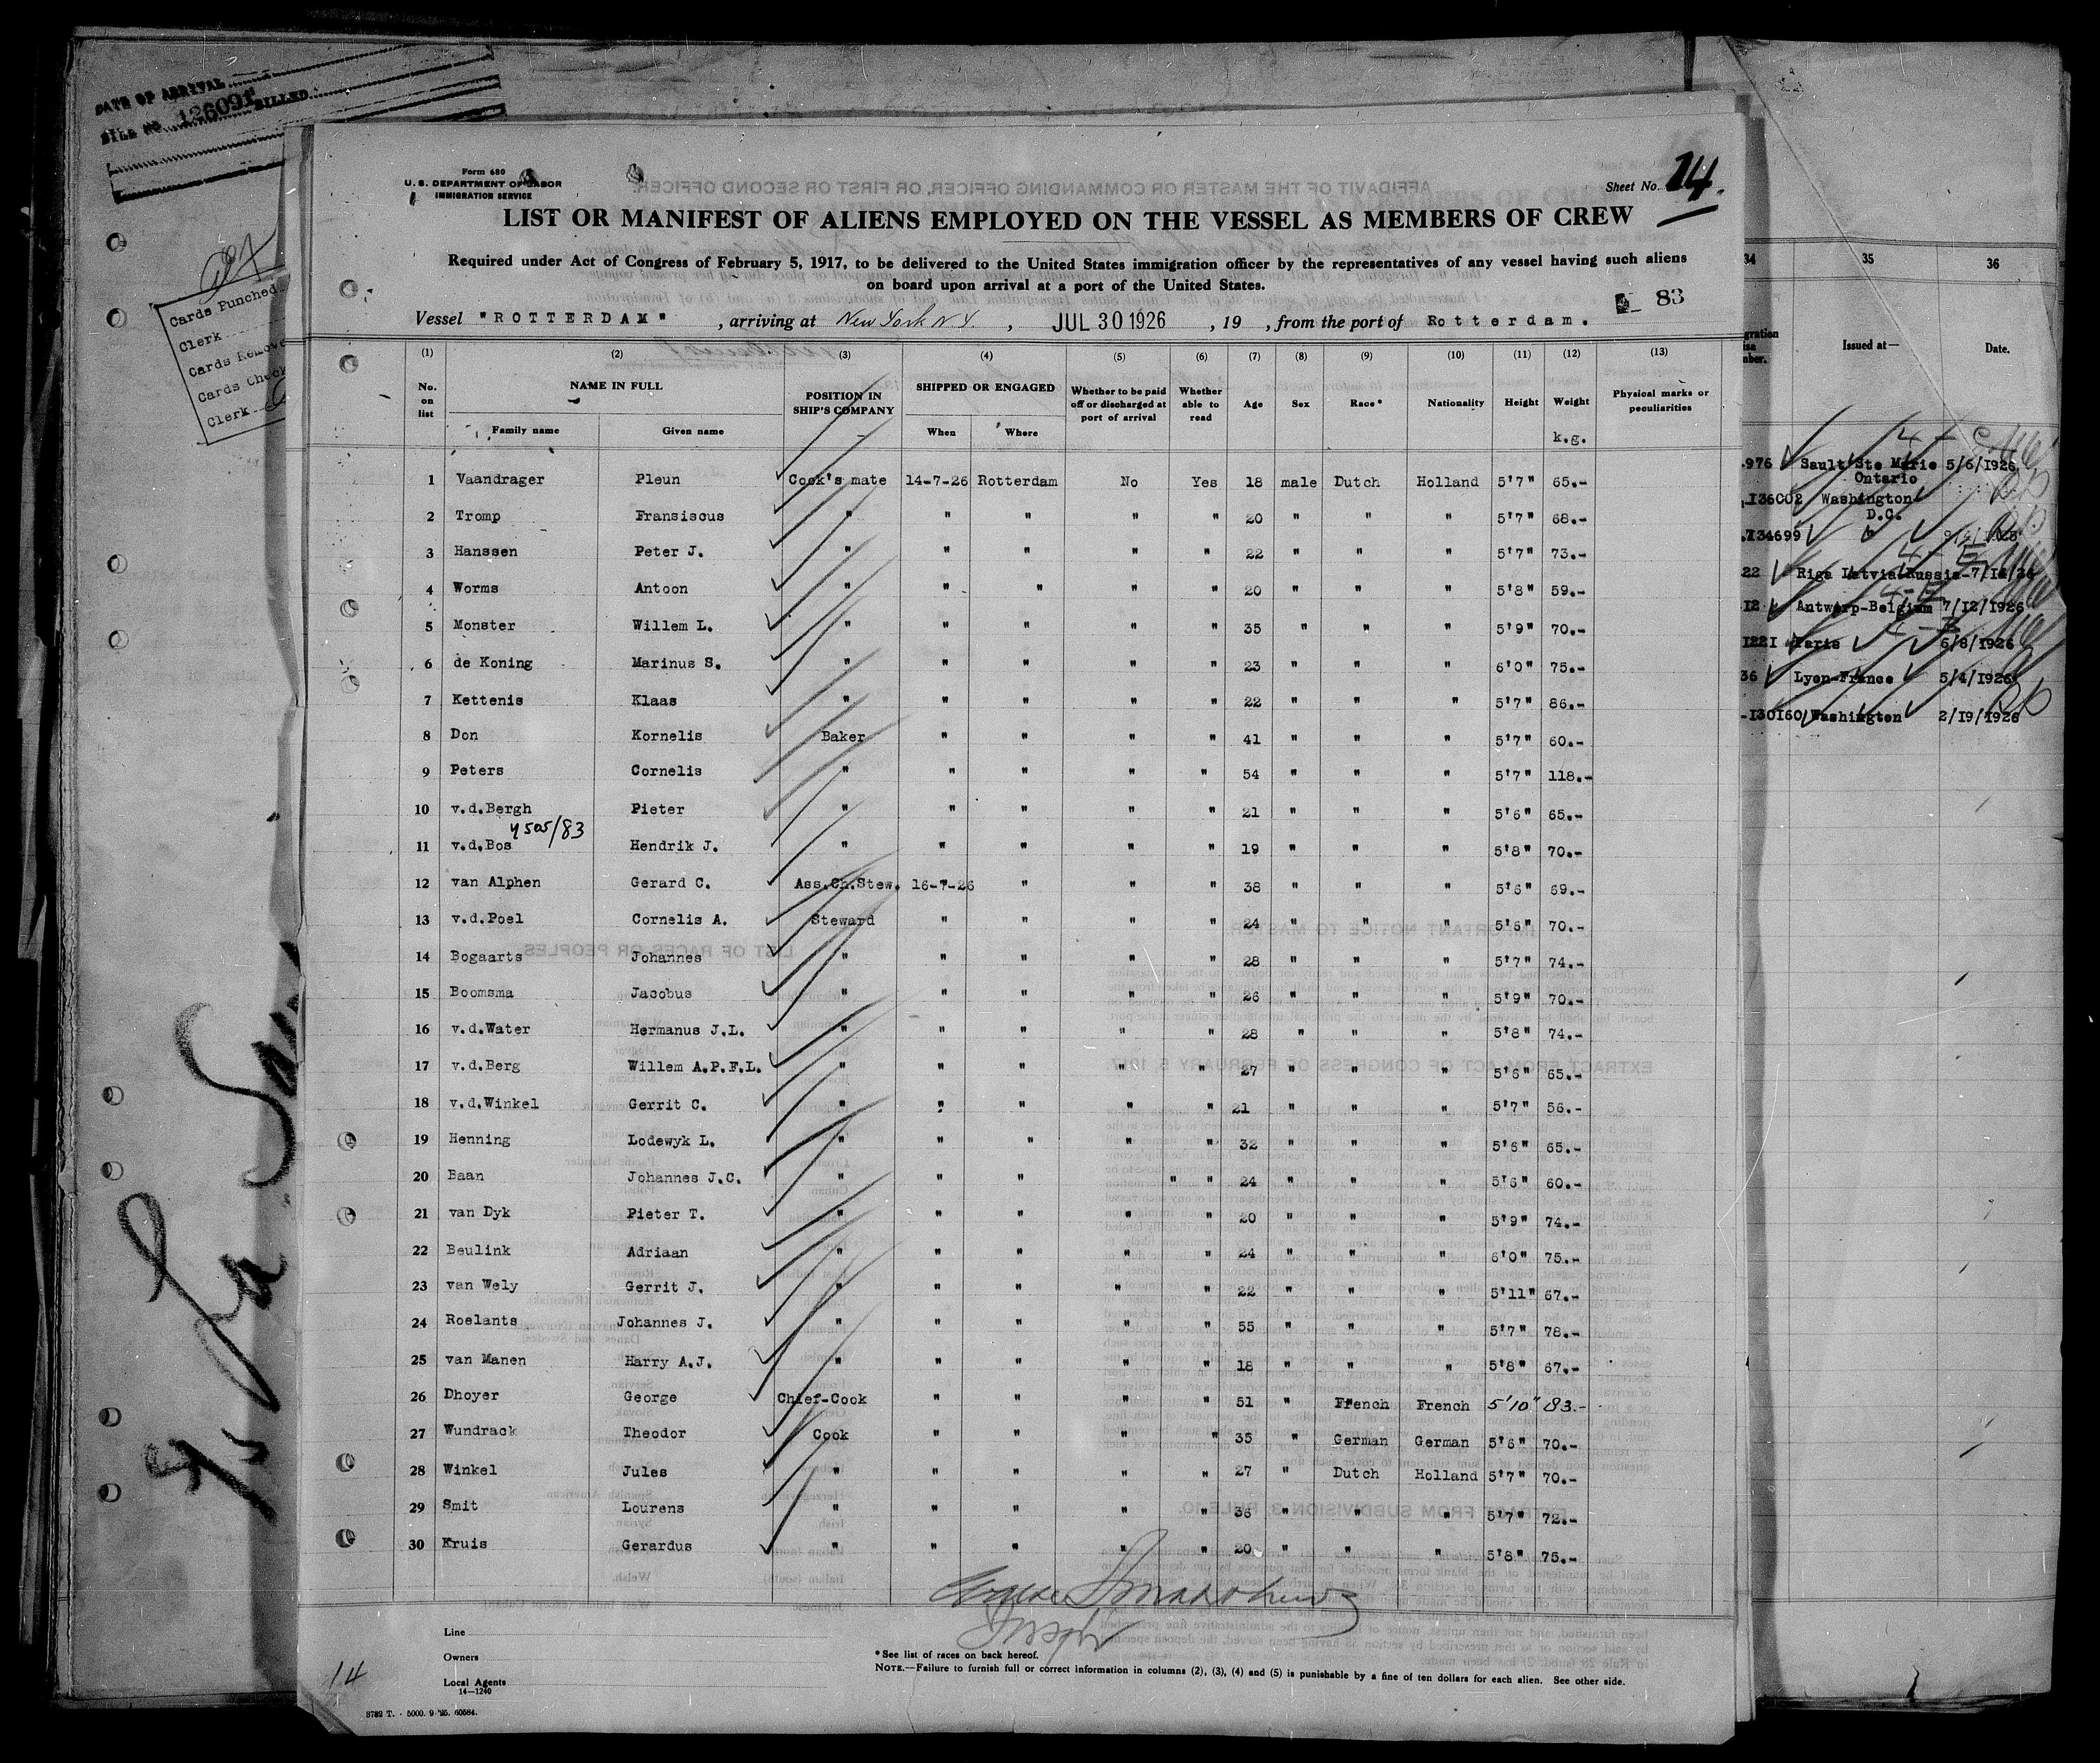 DATE OF ARRIVAL
BILL NO. 126091 BILLED
Cards Punched
Clerk
Cards Remove
Cards Check
Clerk
Form 680
U. S. DEPARTMENT OF LABOR
IMMIGRATION SERVICE
Sheet No. 14.
LIST OR MANIFEST OF ALIENS EMPLOYED ON THE VESSEL AS MEMBERS OF CREW
Required under Act of Congress of February 5, 1917, to be delivered to the United States immigration officer by the representatives of any vessel having such aliens
on board upon arrival at a port of the United States.
83
Vessel "ROTTERDAM" , arriving at New York N.Y. , JUL 30 1926 , 19 , from the port of Rotterdam.
(1) (2) (3) (4) (5) (6) (7) (8) (9) (10) (11) (12) (13)
No. on list NAME IN FULL POSITION IN SHIP'S COMPANY SHIPPED OR ENGAGED Whether to be paid off or discharged at port of arrival Whether able to read Age Sex Race* Nationality Height Weight Physical marks or peculiarities
Family name Given name When Where k.g.
1 Vaandrager Pleun Cook's mate 14-7-26 Rotterdam No Yes 18 male Dutch Holland 5'7" 65.-
2 Tromp Fransiscus " " " " " 20 " " " 5'7" 68.-
3 Hanssen Peter J. " " " " " 22 " " " 5'7" 73.-
4 Worms Antoon " " " " " 20 " " " 5'8" 59.-
5 Monster Willem L. " " " " " 35 " " " 5'9" 70.-
6 de Koning Marinus S. " " " " " 23 " " " 6'0" 75.-
7 Kettenis Klaas " " " " " 22 " " " 5'7" 86.-
8 Don Kornelis Baker " " " " 41 " " " 5'7" 60.-
9 Peters Cornelis " " " " " 54 " " " 5'7" 118.-
10 v.d.Bergh Pieter " " " " " 21 " " " 5'6" 65.-
4505/83
11 v.d.Bos Hendrik J. " " " " " 19 " " " 5'8" 70.-
12 van Alphen Gerard C. Ass.Ch.Stew. 16-7-26 " " " 38 " " " 5'6" 69.-
13 v.d.Poel Cornelis A. Steward " " " " 24 " " " 5'6" 70.-
14 Bogaarts Johannes " " " " " 28 " " " 5'7" 74.-
15 Boomsma Jacobus " " " " " 26 " " " 5'9" 70.-
16 v.d.Water Hermanus J.L. " " " " " 28 " " " 5'8" 74.-
17 v.d.Berg Willem A.P.F.L. " " " " " 27 " " " 5'6" 65.-
18 v.d.Winkel Gerrit C. " " " " " 21 " " " 5'7" 56.-
19 Henning Lodewyk L. " " " " " 32 " " " 5'6" 65.-
20 Baan Johannes J.C. " " " " " 24 " " " 5'6" 60.-
21 van Dyk Pieter T. " " " " " 20 " " " 5'9" 74.-
22 Beulink Adriaan " " " " " 24 " " " 6'0" 75.-
23 van Wely Gerrit J. " " " " " 22 " " " 5'11" 67.-
24 Roelants Johannes J. " " " " " 55 " " " 5'7" 78.-
25 van Manen Harry A.J. " " " " " 18 " " " 5'8" 67.-
26 Dhoyer George Chief-Cook " " " " 51 " French French 5'10" 83.-
27 Wundrack Theodor Cook " " " " 35 " German German 5'6" 70.-
28 Winkel Jules " " " " " 27 " Dutch Holland 5'7" 70.-
29 Smit Lourens " " " " " 36 " " " 5'7" 72.-
30 Kruis Gerardus " " " " " 20 " " " 5'8" 75.-
Line
Owners
Local Agents
14—1240
* See list of races on back hereof.
NOTE.—Failure to furnish full or correct information in columns (2), (3), (4) and (5) is punishable by a fine of ten dollars for each alien. See other side.
14
8782 T. - 5000. 9 '25. 60584.
34 35 36
Issued at— Date.
976 Sault Ste Marie 5/6/1926
Ontario
136002 Washington
D.C.
134699
22 Riga Latvia Russia
12 Antwerp-Belgium 7/12/1926
1221 Paris 6/8/1926
36 Lyon-France 5/4/1926
-130160 Washington 2/19/1926